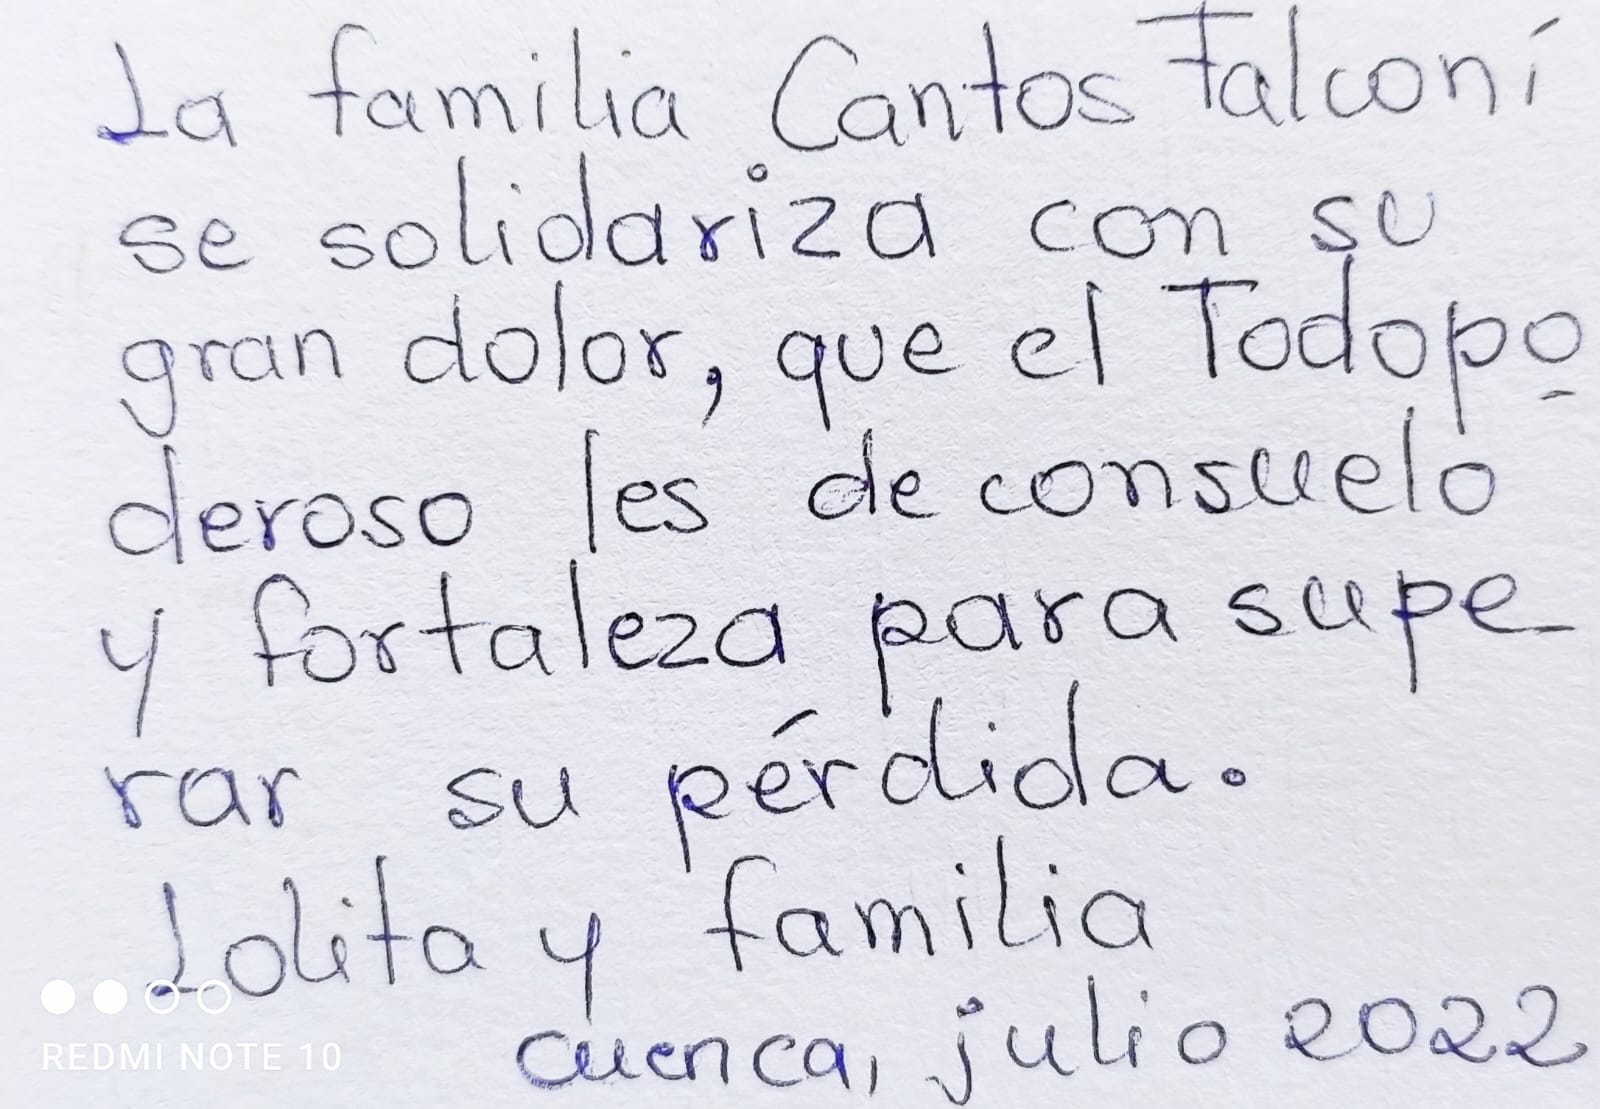 La familia Cantos Falconí
se solidariza con su
gran dolor, que el Todopo
deroso les de consuelo
y fortaleza para supe
rar su pérdida.
Lolita y familia
Cuenca, julio 2022
REDMI NOTE 10